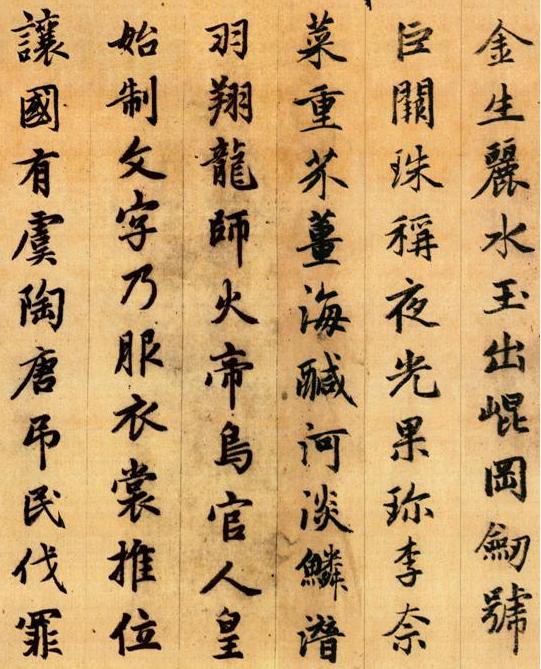 金生麗水玉出崐岡劒號
巨闕珠稱夜光果珎李奈
菜重芥薑海醎河淡鱗潛
羽翔龍師火帝鳥官人皇
始制文字乃服衣裳推位
讓國有虞陶唐吊民伐罪